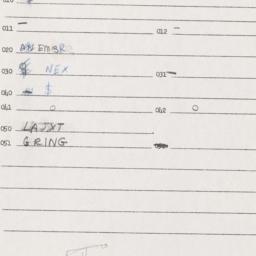 010
011 – 012 –
020 EMBR
030 NEX 031 –
040 $
041 O 042 O
050 LAJXT
051 GRING